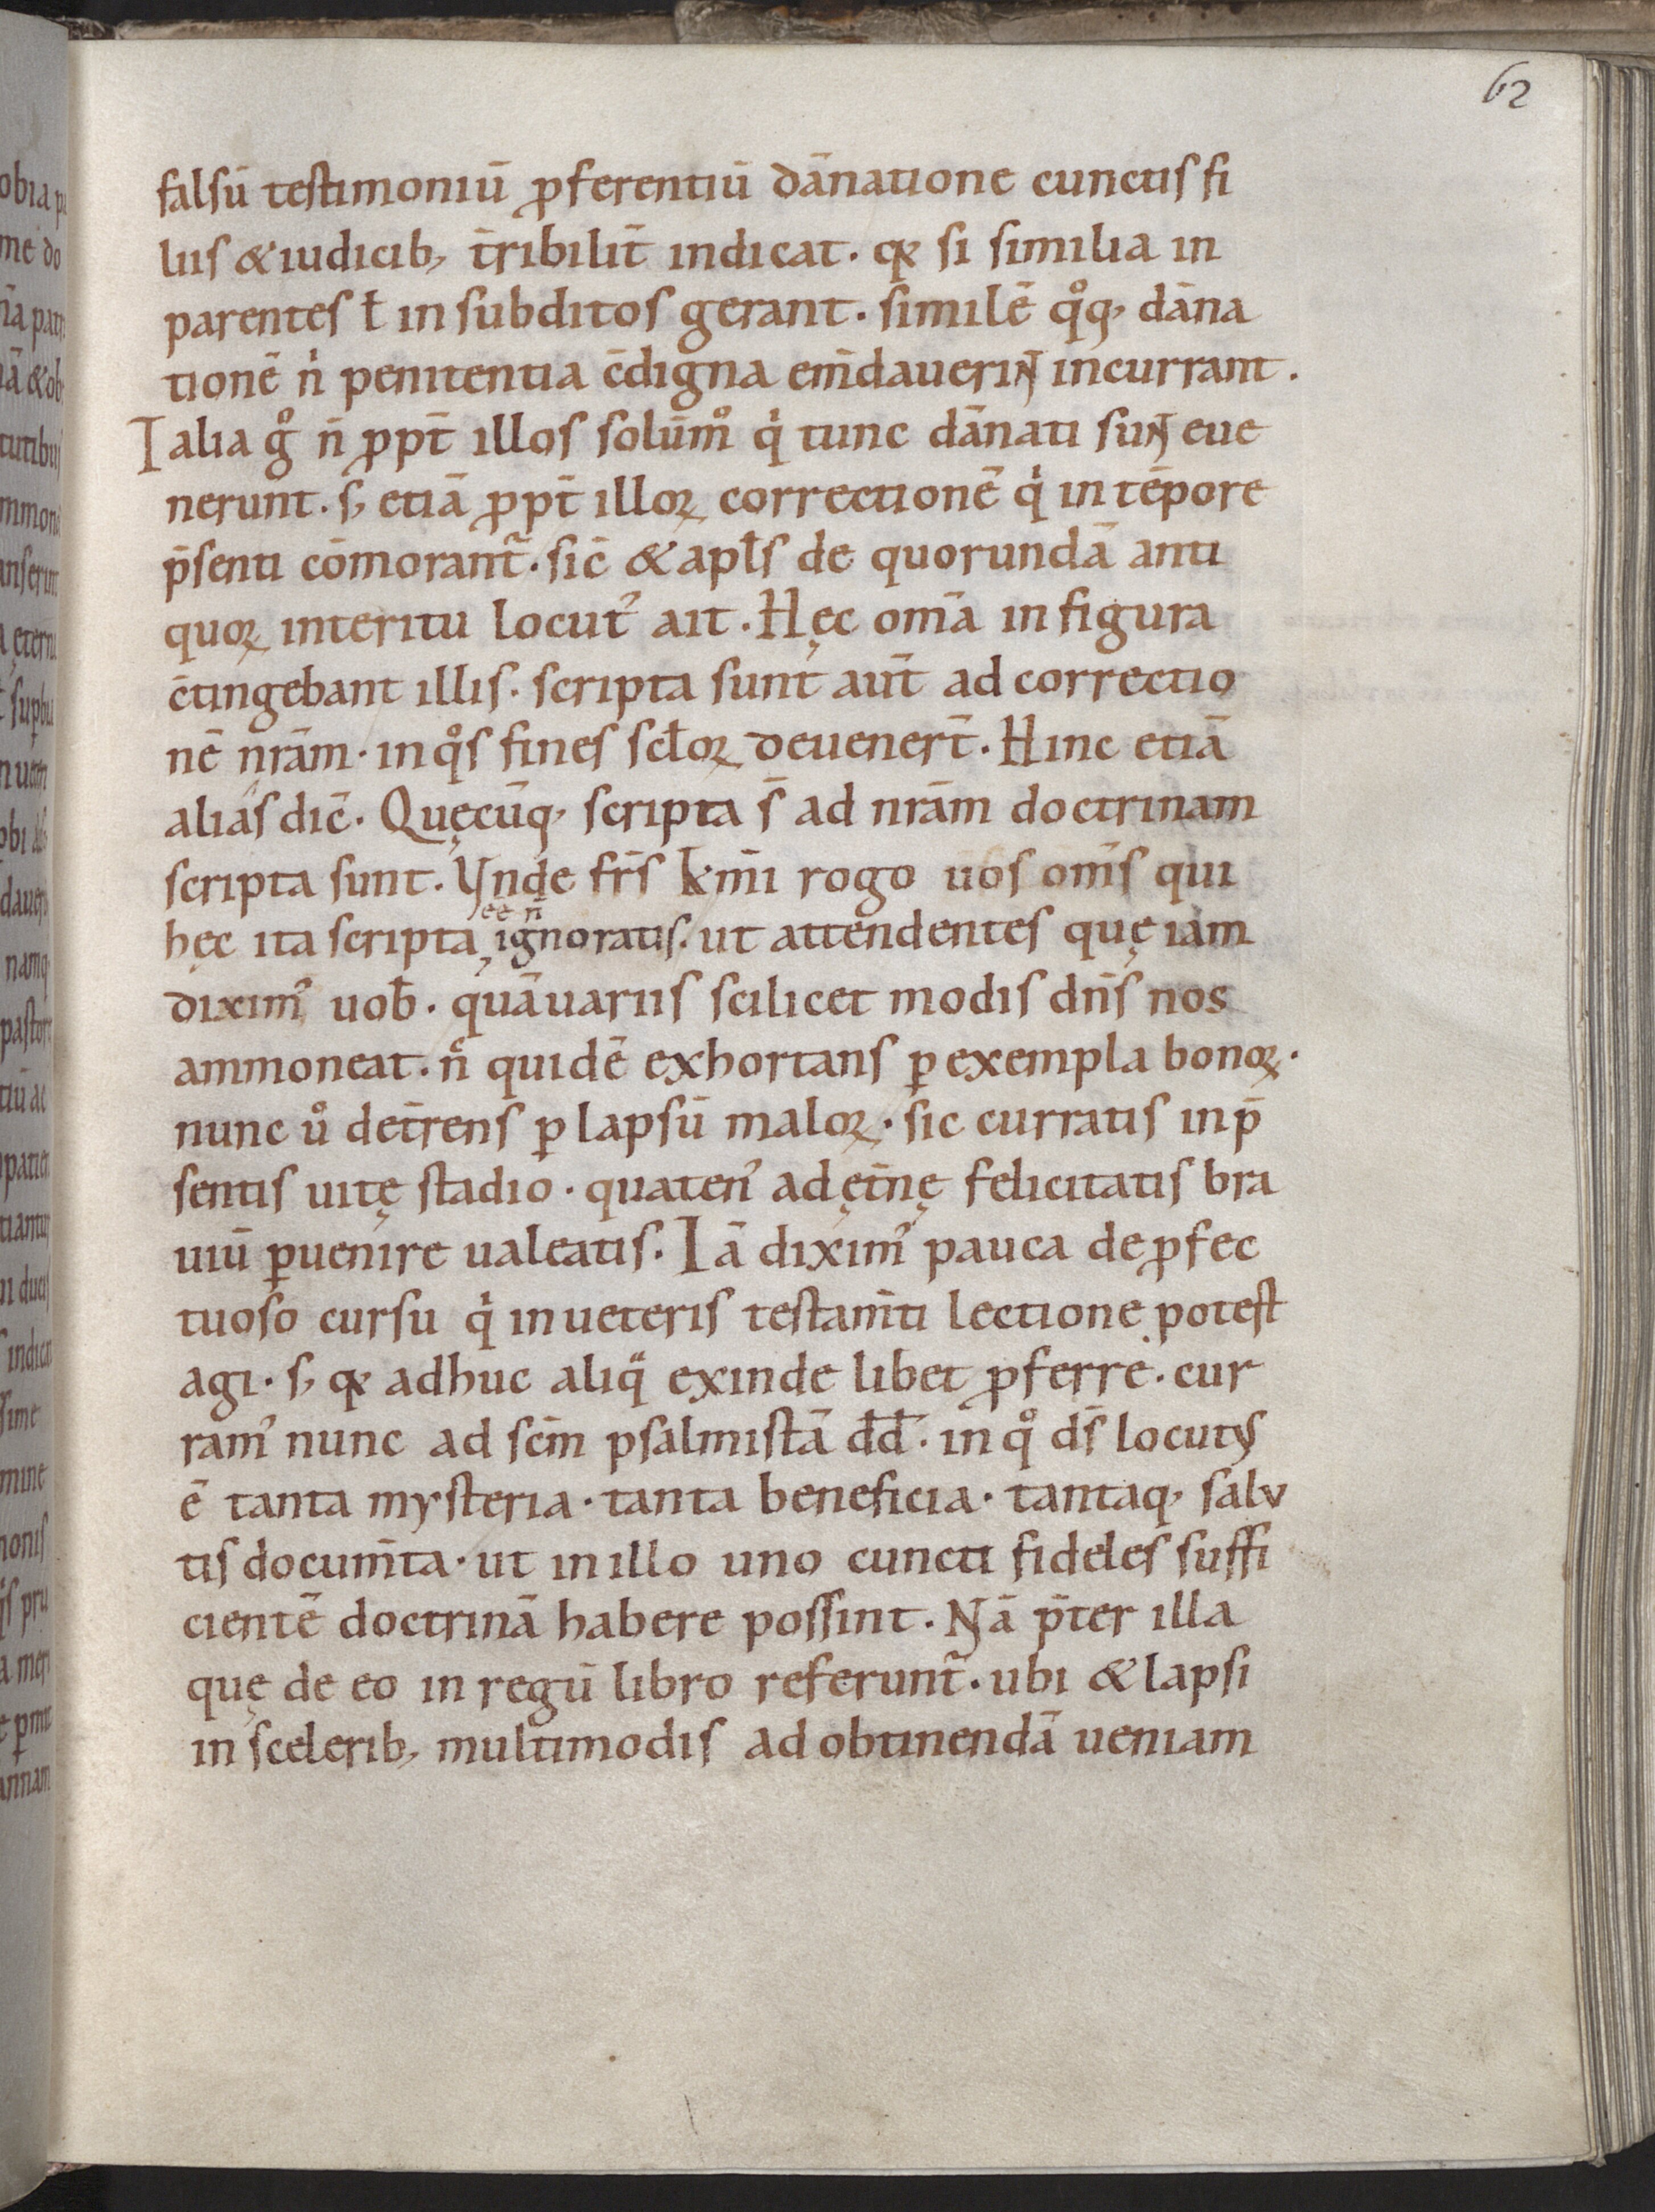 62
falsū testimoniū ꝓferentiū dānatione cunctis fi
liis & iudicib; t̄ribilit̄ indicat. qꝛ si similia in
parentes ł in subditos gerant. similē qͦq; dāna
tionē nͥ penitentia c̄digna em̄dauerint incurrant.
Talia gͦ n̄ ꝓpt̄ illos solūmͦ qͥ tunc dānati sunt eue
nerunt. s; etiā ꝓpt̄ illoꝝ correctionē qͥ in tēpore
p̄senti cōmorant᷑. sic̄ & apl̄s de quorundā anti
quoꝝ interitu locutꝰ ait. Hęc om̄a in figura
c̄tingebant illis. scripta sunt aūt ad correctio
nē nrām. in qͦs fines scl̄oꝝ deuenert̄. Hinc etiā
alias dic̄. Quęcūq; scripta s̄ ad nrām doctrinam
scripta sunt. Vnde frīs km̄i rogo uos om̄s qui
hęc ita scripta ee n̄ ignoratis. ut attendentes quę iam
diximꝰ uob̄. quā uariis scilicet modis dn̄s nos
ammoneat. n̊ quidē exhortans ꝑ exempla bonoꝝ.
nunc uͦ det̄rens ꝑ lapsū maloꝝ. sic curratis in p̄
sentis uitę stadio. quatenꝰ ad ęt̄nę felicitatis bra
uiū ꝑuenire ualeatis. Iā diximꝰ pauca de ꝓfec
tuoso cursu qͥ in ueteris testam̄ti lectione potest
agi. s; qꝛ adhuc aliqͣ exinde libet ꝓferre. cur
ramꝰ nunc ad scm̄ psalmistā dd̄. in qͦ ds̄ locutus
ē tanta mysteria. tanta beneficia. tantaq; salu
tis docum̄ta. ut in illo uno cuncti fideles suffi
cientē doctrinā habere possint. Nā p̄ter illa
quę de eo in regū libro referunt᷑. ubi & lapsi
in scelerib; multimodis ad obtinendā ueniam